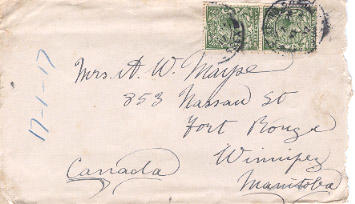 17-1-17
Mrs. A. W. Maype
853 Nassau St
Fort Rouge
Winnipeg
Canada
Manitoba